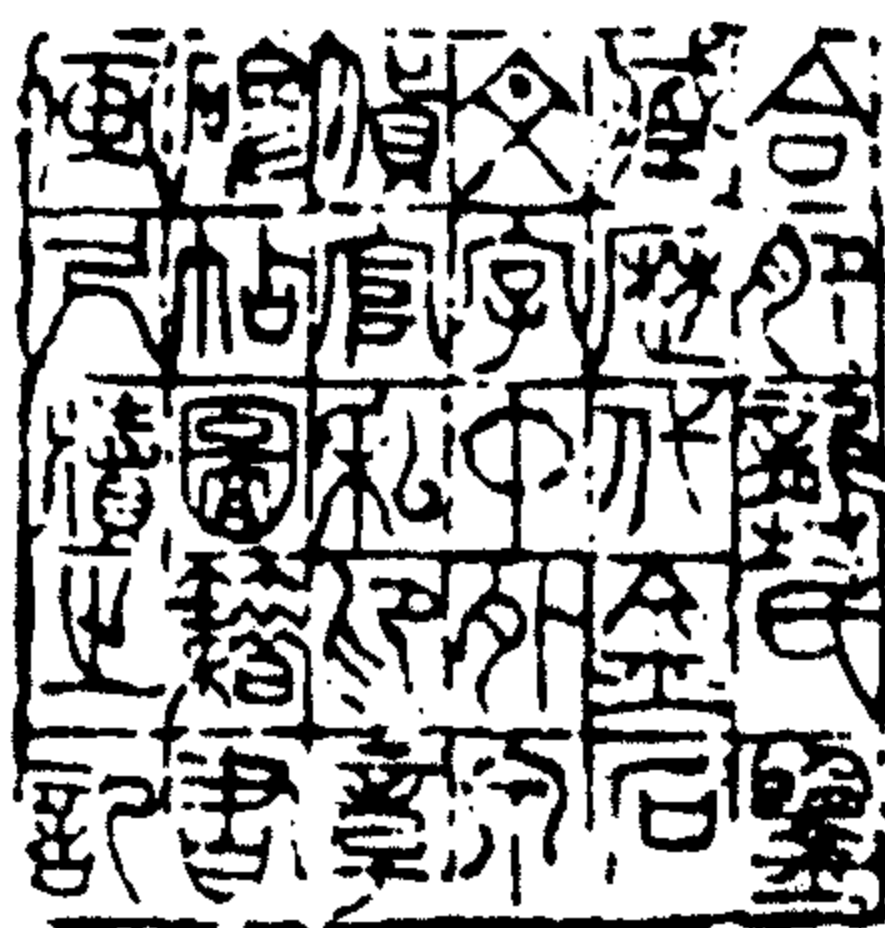 合肥龔氏鑒
藏歷代金石
文字中外泉
貨官私印章
帖圖籍書
之記